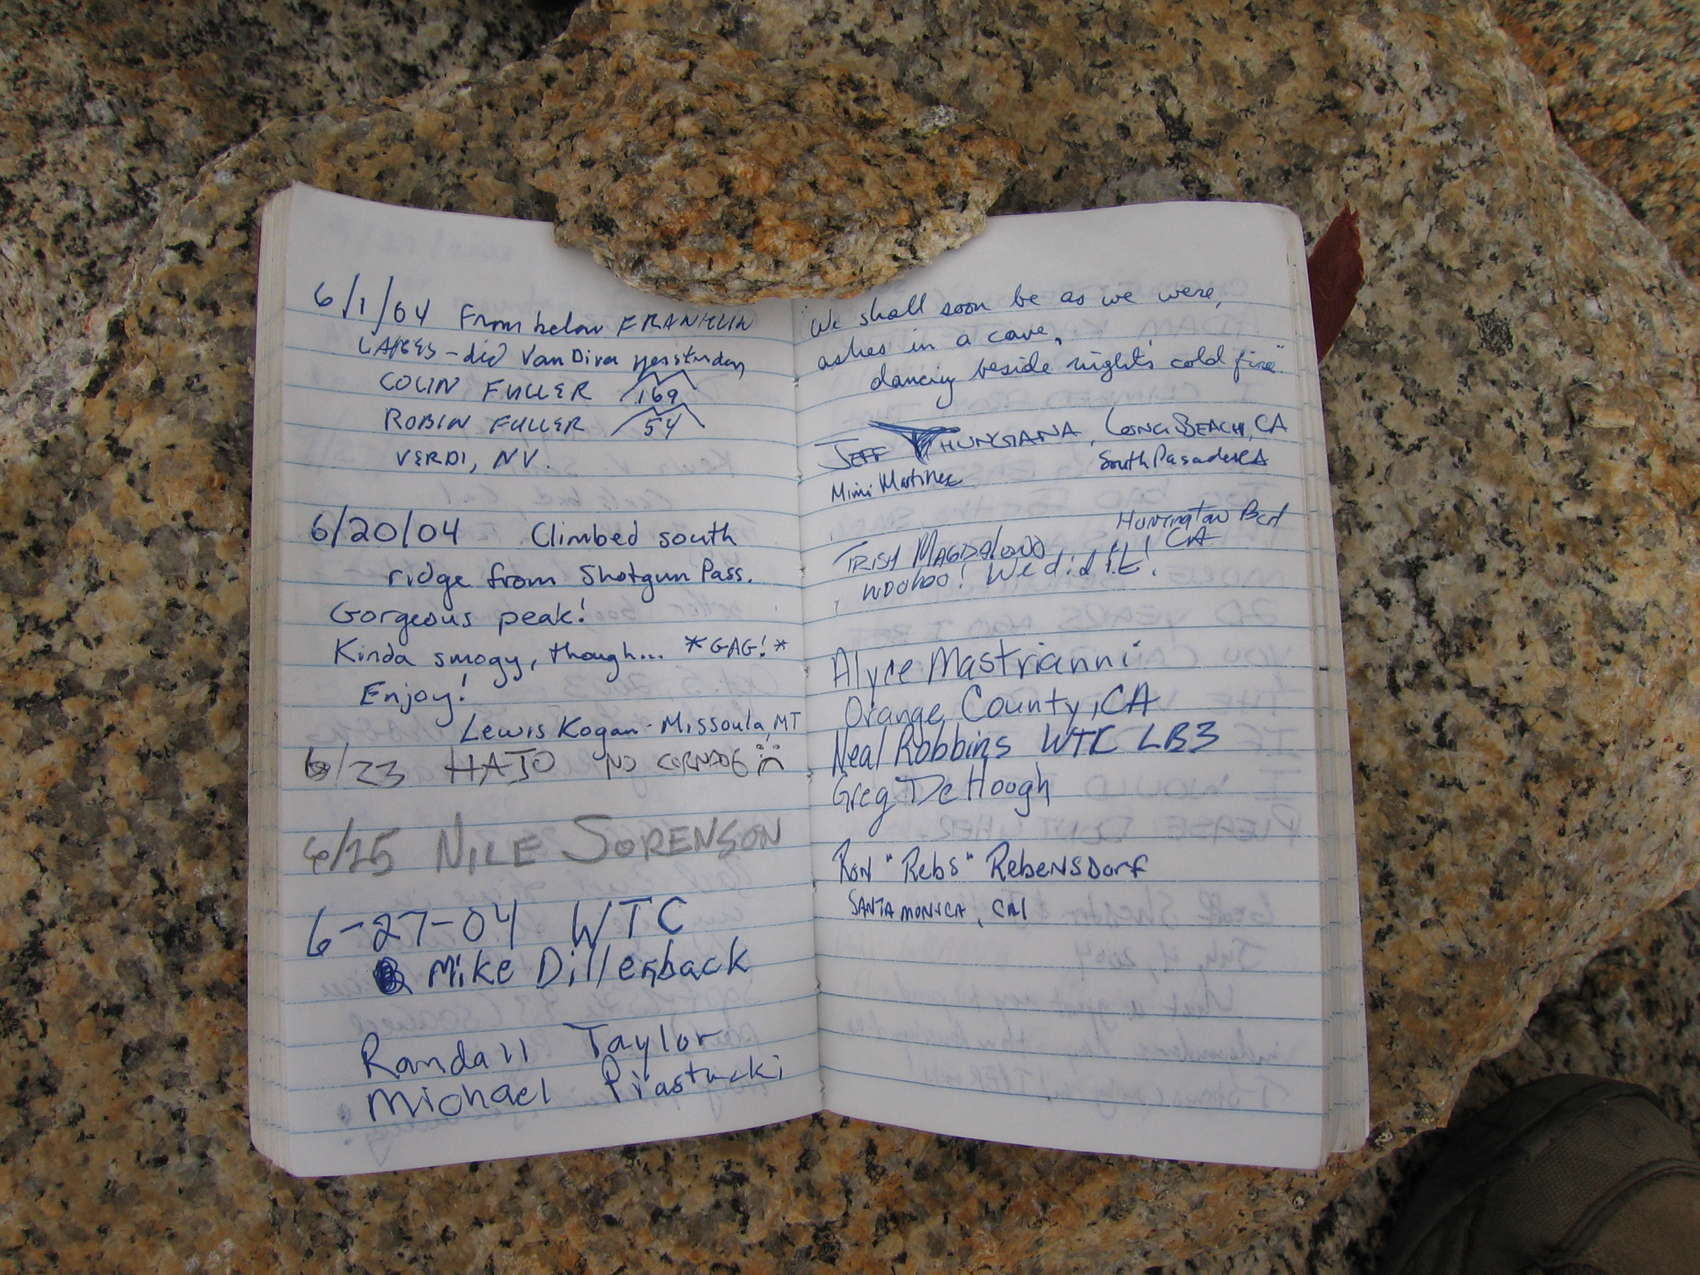 6/1/04 From below FRANKLIN
LAKES - did Van Diver yesterday
COLIN FULLER 169
ROBIN FULLER 54
VERDI, NV.
6/20/04 Climbed south
ridge from Shotgun Pass.
Gorgeous peak!
Kinda smogy, though... *GAG!*
Enjoy!
Lewis Kogan - Missoula, MT
6/23 HAJO NO
6/25 NILE SORENSON
6-27-04 WTC
Mike Dillenback
Randall Taylor
Michael Piastucki
"We shall soon be as we were,
ashes in a cave,
dancing beside night's cold fire"
JEFF, LONG BEACH, CA
Mimi Martinez South Pasadena
TRISH HUNTINGTON BCH
CA
WOOHOO! We did it!
Alyce Mastrianni
Orange County, CA
Neal Robbins WTC LB3
Greg DeHoogh
RON "Rebs" RebeNSDorf
SANTA MONICA, CAL